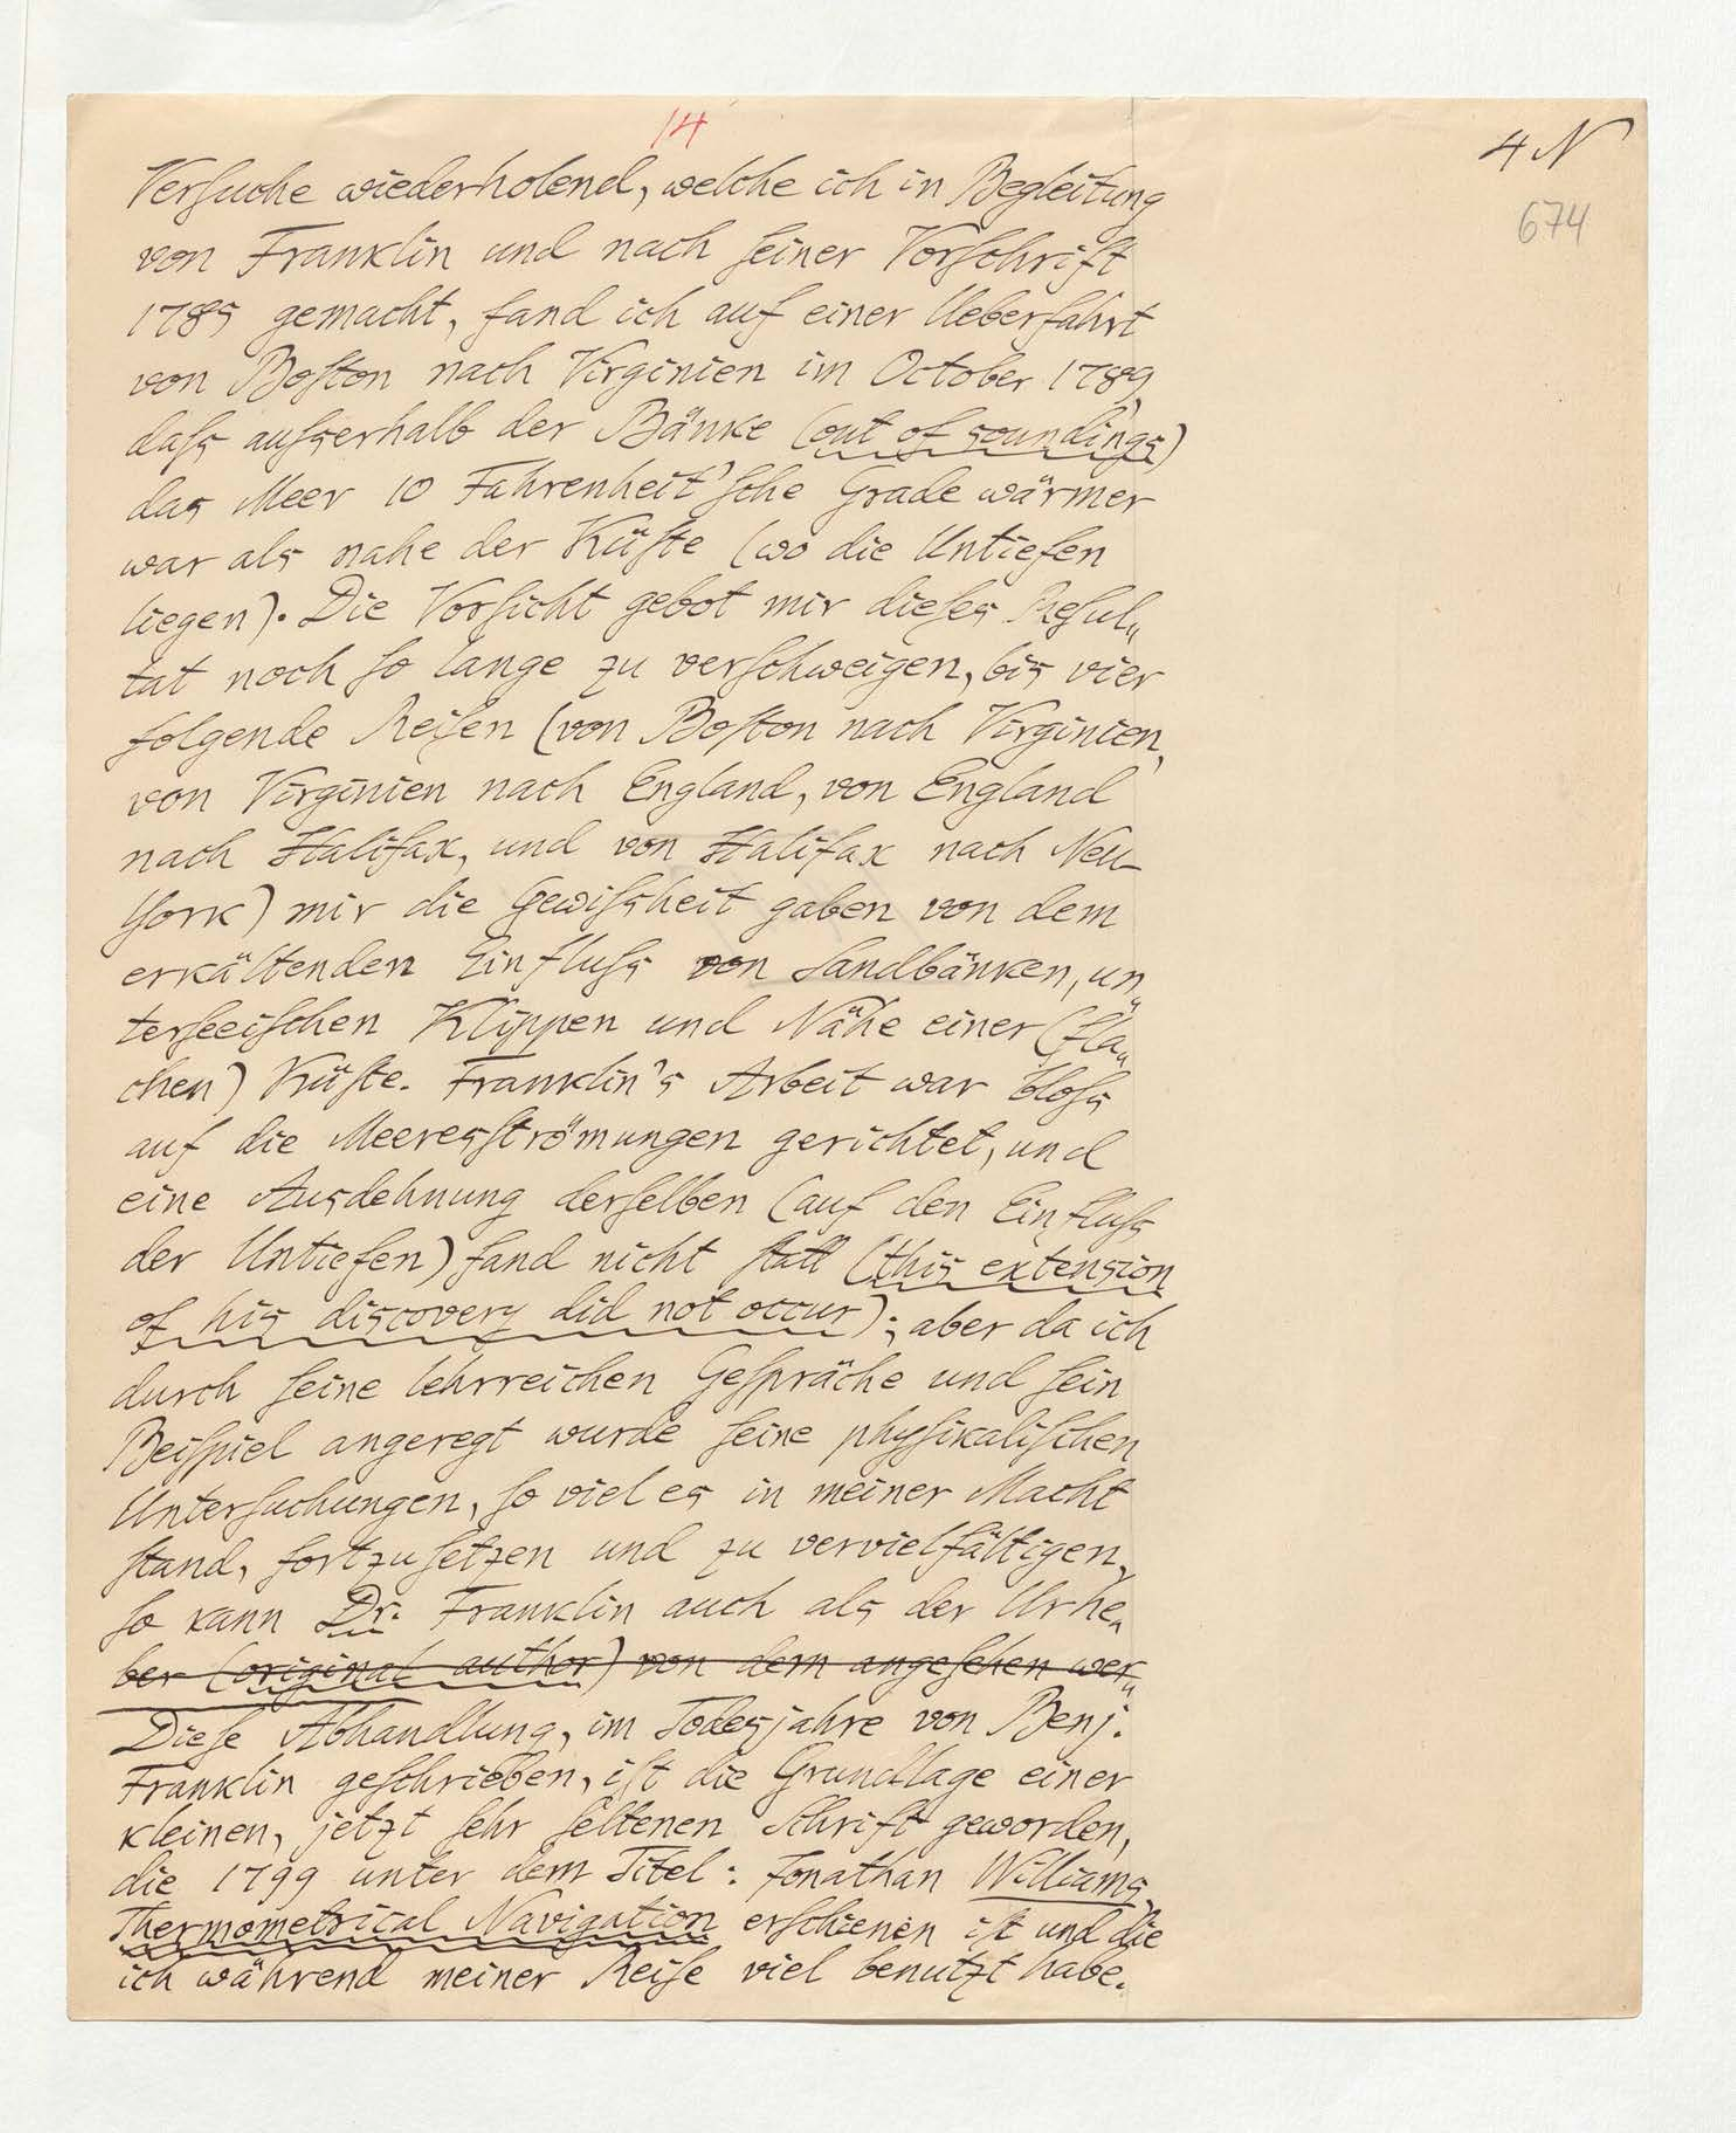 14
4 N
674
Versuche wiederholend, welche ich in Begleitung
von Franklin und nach seiner Vorschrift
1785 gemacht, fand ich auf einer Ueberfahrt
von Boston nach Virginien im October 1789,
dass ausserhalb der Bänke (out of soundings)
das Meer 10 Fahrenheit'sche Grade wärmer
war als nahe der Küste (wo die Untiefen
liegen). Die Vorsicht gebot mir dieses Resul„
tat noch so lange zu verschweigen, bis vier
folgende Reisen (von Boston nach Virginien,
von Virginien nach England, von England
nach Halifax, und von Halifax nach Neu-
York) mir die Gewissheit gaben von dem
erkältenden Einfluss von Sandbänken, un„
terseeischen Klippen und Nähe einer (fla„
chen) Küste. Franklin's Arbeit war bloss
auf die Meeresströmungen gerichtet, und
eine Ausdehnung derselben (auf den Einfluss
der Untiefen) fand nicht statt (this extension
of his discovery did not occur); aber da ich
durch seine lehrreichen Gespräche und sein
Beispiel angeregt wurde seine physikalischen
Untersuchungen, so viel es in meiner Macht
stand, fortzusetzen und zu vervielfältigen,
so kann Dr. Franklin auch als der Urhe„
ber (original author) von dem angesehen wer„
Diese Abhandlung, im Todesjahre von Benj.
Franklin geschrieben, ist die Grundlage einer
kleinen, jetzt sehr seltenen Schrift geworden,
die 1799 unter dem Titel: Jonathan Williams,
Thermometrical Navigation erschienen ist und die
ich während meiner Reise viel benutzt habe.